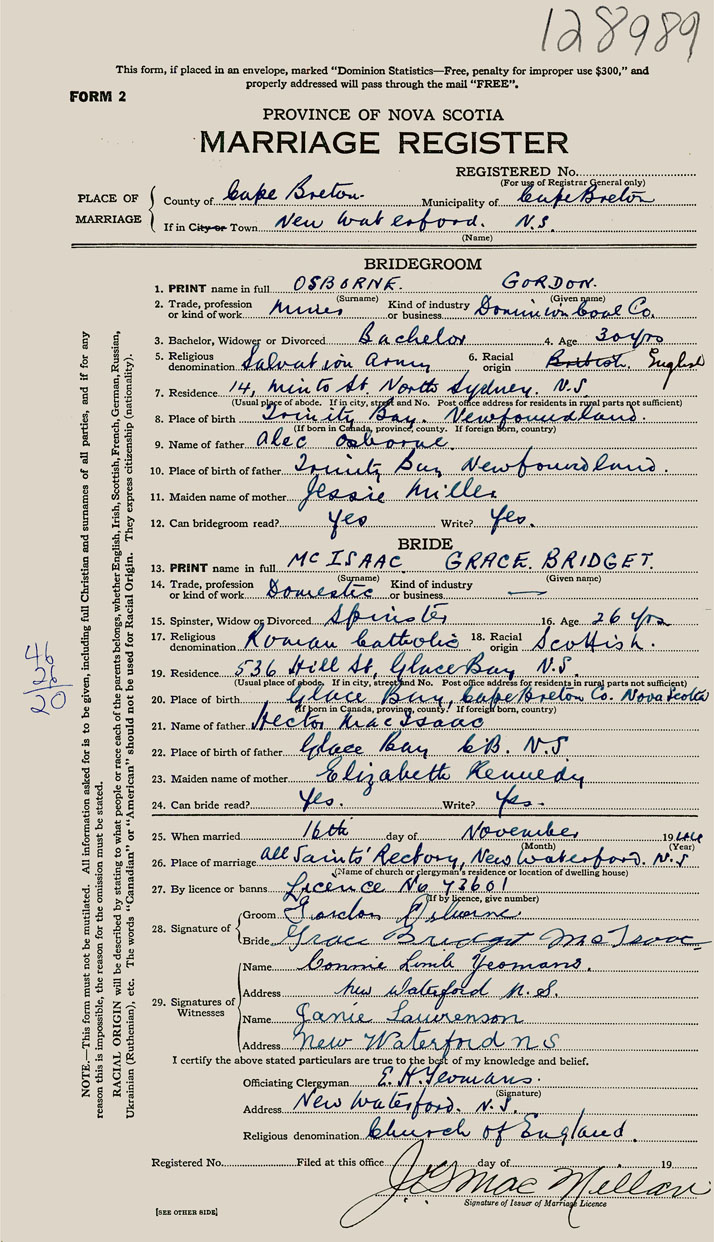 128989
This form, if placed in an envelope, marked "Dominion Statistics—Free, penalty for improper use $300," and
properly addressed will pass through the mail "FREE".
FORM 2
PROVINCE OF NOVA SCOTIA
MARRIAGE REGISTER
REGISTERED No.
(For use of Registrar General only)
PLACE OF MARRIAGE
County of Cape Breton Municipality of Cape Breton
If in City or Town New Waterford. N.S.
(Name)
BRIDEGROOM
1. PRINT name in full OSBORNE. GORDON.
(Surname) (Given name)
2. Trade, profession or kind of work Miner Kind of industry or business Dominion Coal Co.
3. Bachelor, Widower or Divorced Bachelor 4. Age 30 yrs
5. Religious denomination Salvation Army 6. Racial origin British, English
7. Residence 14, Minto St North Sydney. N.S.
(Usual place of abode. If in city, street and No. Post office address for residents in rural parts not sufficient)
8. Place of birth Trinity Bay. Newfoundland.
(If born in Canada, province, county. If foreign born, country)
9. Name of father Alec Osborne.
10. Place of birth of father Trinity Bay Newfoundland.
11. Maiden name of mother Jessie Miller
12. Can bridegroom read? Yes Write? Yes.
BRIDE
13. PRINT name in full MC ISAAC GRACE. BRIDGET.
(Surname) (Given name)
14. Trade, profession or kind of work Domestic Kind of industry or business —
15. Spinster, Widow or Divorced Spinster 16. Age 26 yrs
17. Religious denomination Roman Catholic 18. Racial origin Scottish.
19. Residence 536 Hill St, Glace Bay N.S.
(Usual place of abode. If in city, street and No. Post office address for residents in rural parts not sufficient)
20. Place of birth Glace Bay, Cape Breton Co. Nova Scotia
(If born in Canada, province, county. If foreign born, country)
21. Name of father Hector MacIsaac
22. Place of birth of father Glace Bay C.B. N.S
23. Maiden name of mother Elizabeth Kennedy
24. Can bride read? Yes. Write? Yes.
25. When married 16th day of November 19
(Month) (Year)
26. Place of marriage All Saints' Rectory, New Waterford. N.S
(Name of church or clergyman's residence or location of dwelling house)
27. By licence or banns Licence No 73601
(If by licence, give number)
28. Signature of
Groom Gordon Osborne
Bride Grace Bridget McIsaac
29. Signatures of Witnesses
Name Connie Yeomans.
Address New Waterford N.S.
Name Janie Lawrenson
Address New Waterford N S
I certify the above stated particulars are true to the best of my knowledge and belief.
Officiating Clergyman E. H. Yeomans.
(Signature)
Address New Waterford. N.S.
Religious denomination Church of England.
Registered No. Filed at this office day of 19
MacMellan
Signature of Issuer of Marriage Licence
[SEE OTHER SIDE]
NOTE.—This form must not be mutilated. All information asked for is to be given, including full Christian and surnames of all parties, and if for any
reason this is impossible, the reason for the omission must be stated.
RACIAL ORIGIN will be described by stating to what people or race each of the parents belongs, whether English, Irish, Scottish, French, German, Russian,
Ukrainian (Ruthenian), etc. The words "Canadian" or "American" should not be used for Racial Origin. They express citizenship (nationality).
46
26
20